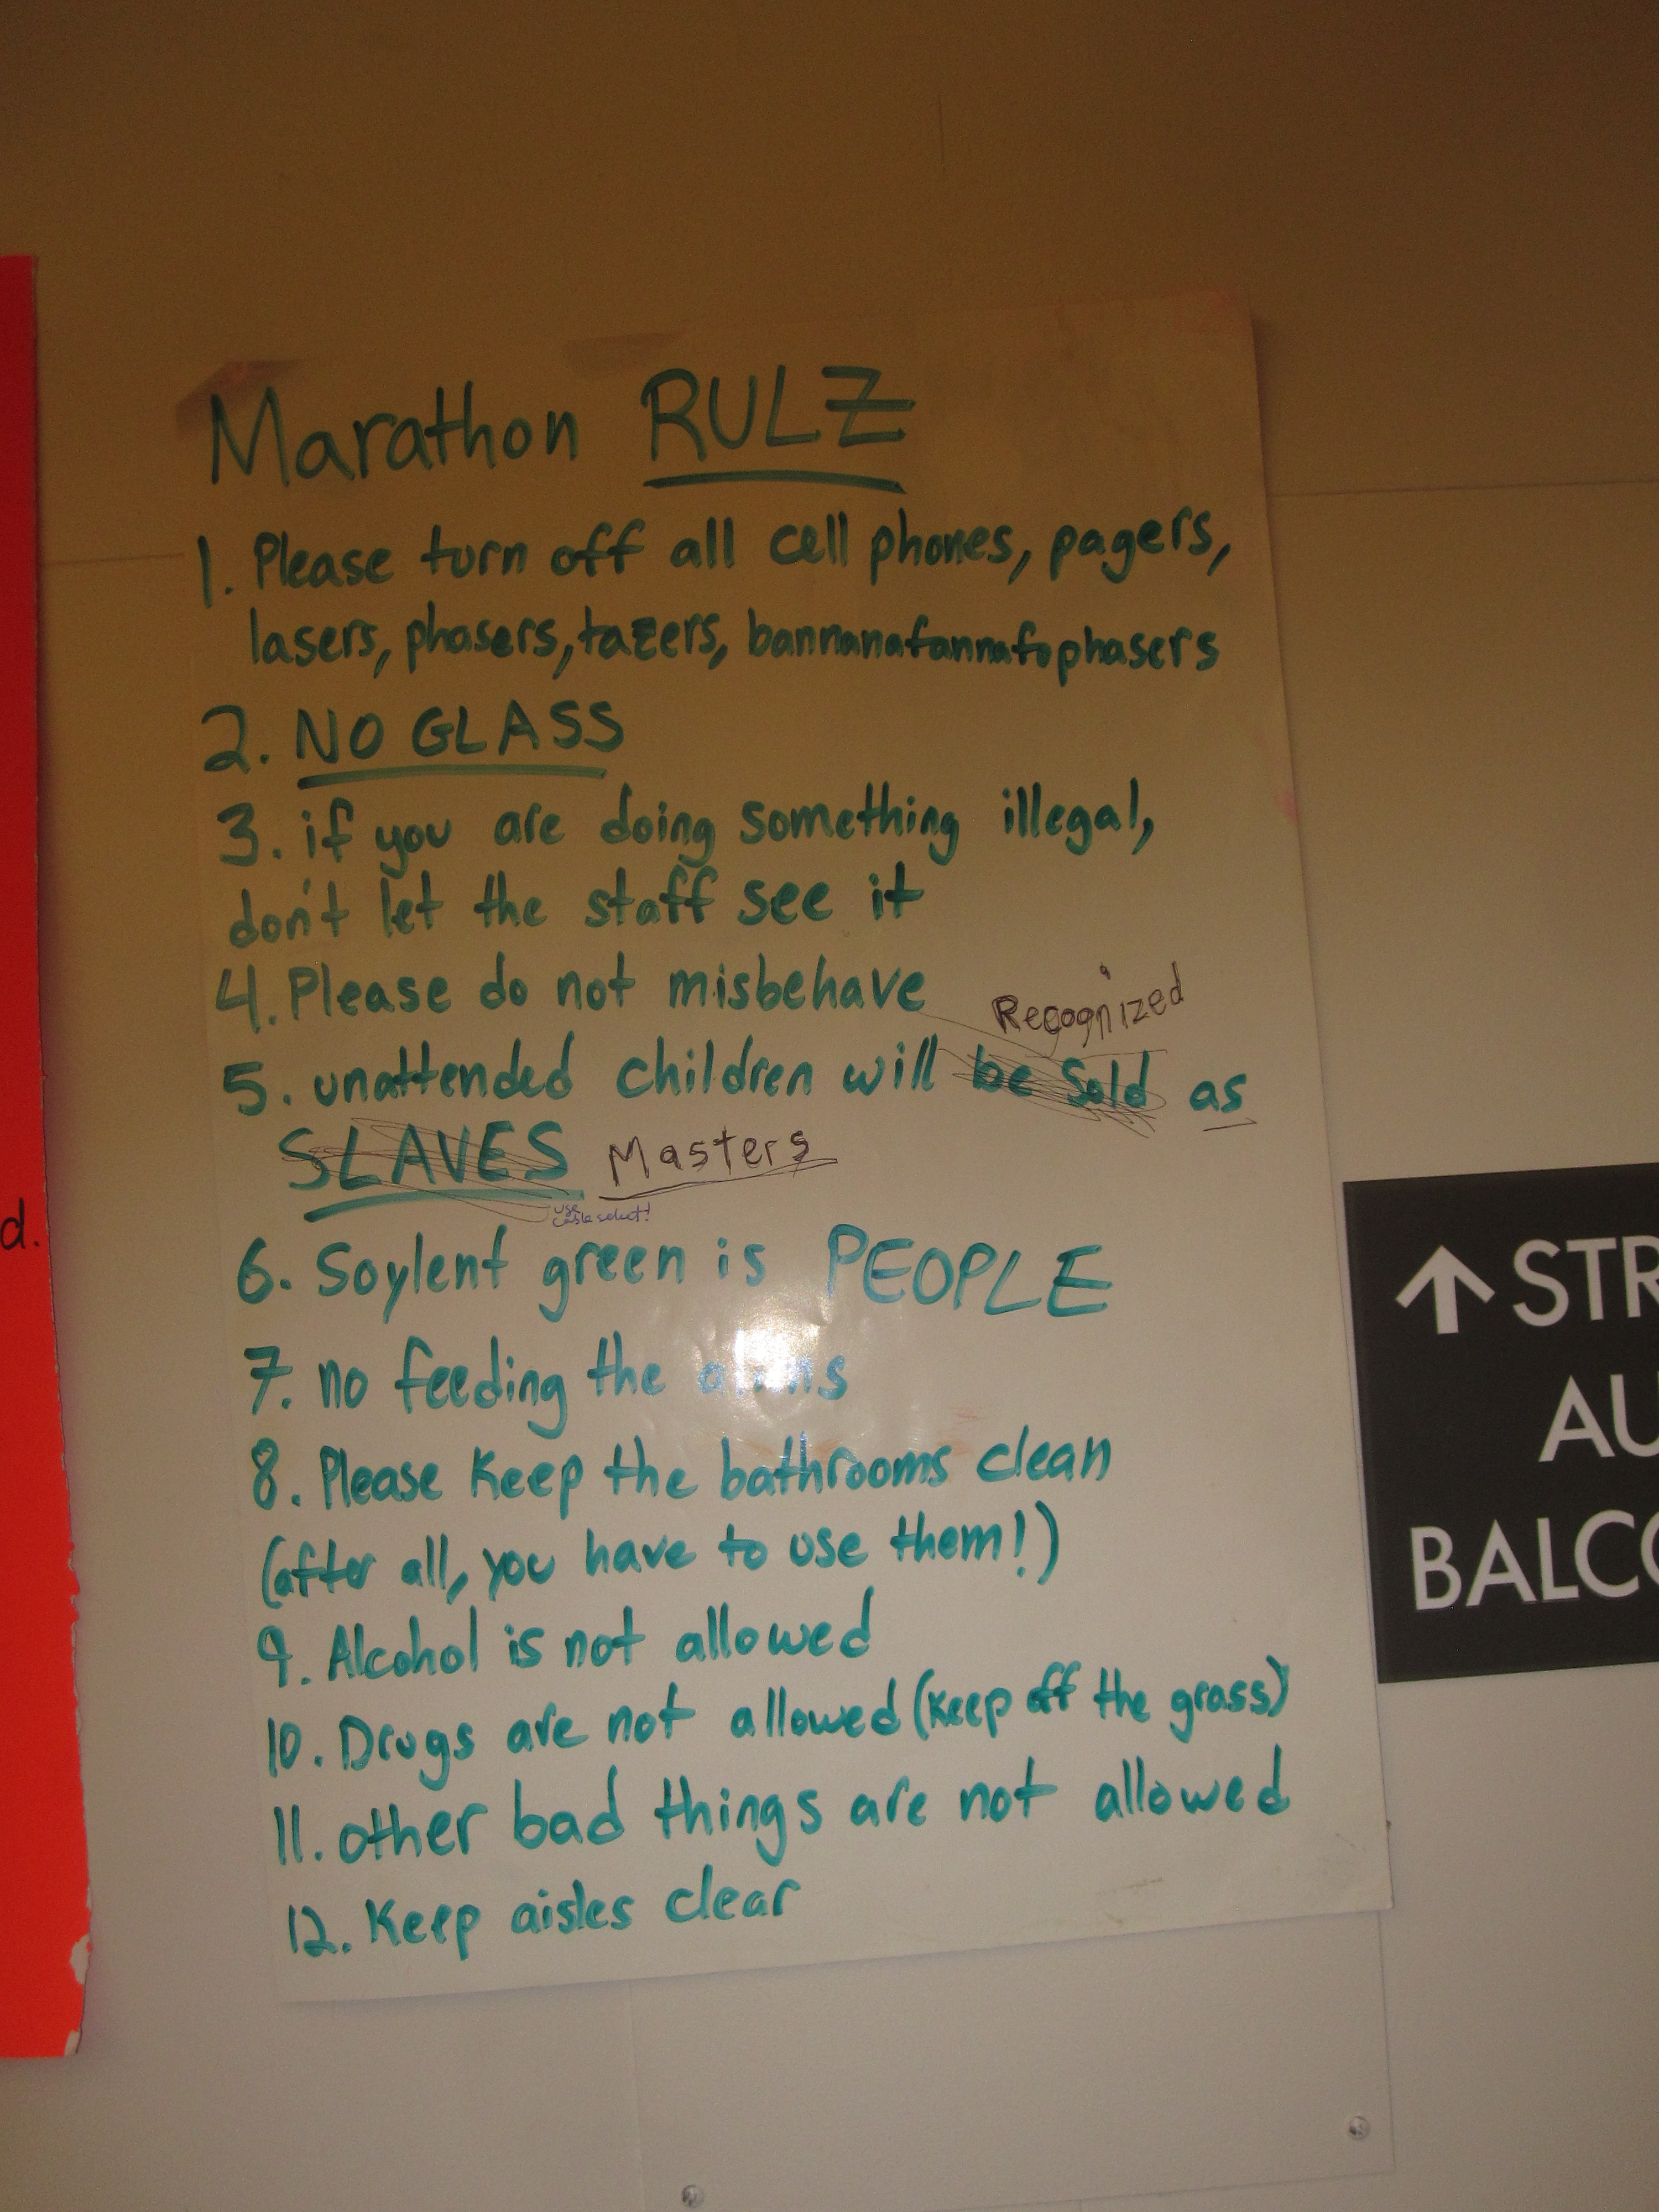 Marathon RULZ
1. Please turn off all cell phones, pagers,
lasers, phasers, tazers, bannanafannafophasers
2. NO GLASS
3. if you are doing something illegal,
don't let the staff see it
4. Please do not misbehave
Recognized
5. unattended children will be sold as
SLAVES Masters
use
cable select!
6. Soylent green is PEOPLE
7. no feeding the aliens
8. Please Keep the bathrooms clean
(after all, you have to use them!)
9. Alcohol is not allowed
10. Drugs are not allowed (keep off the grass)
11. other bad things are not allowed
12. Keep aisles clear
d.
↑ STR
AU
BALCO